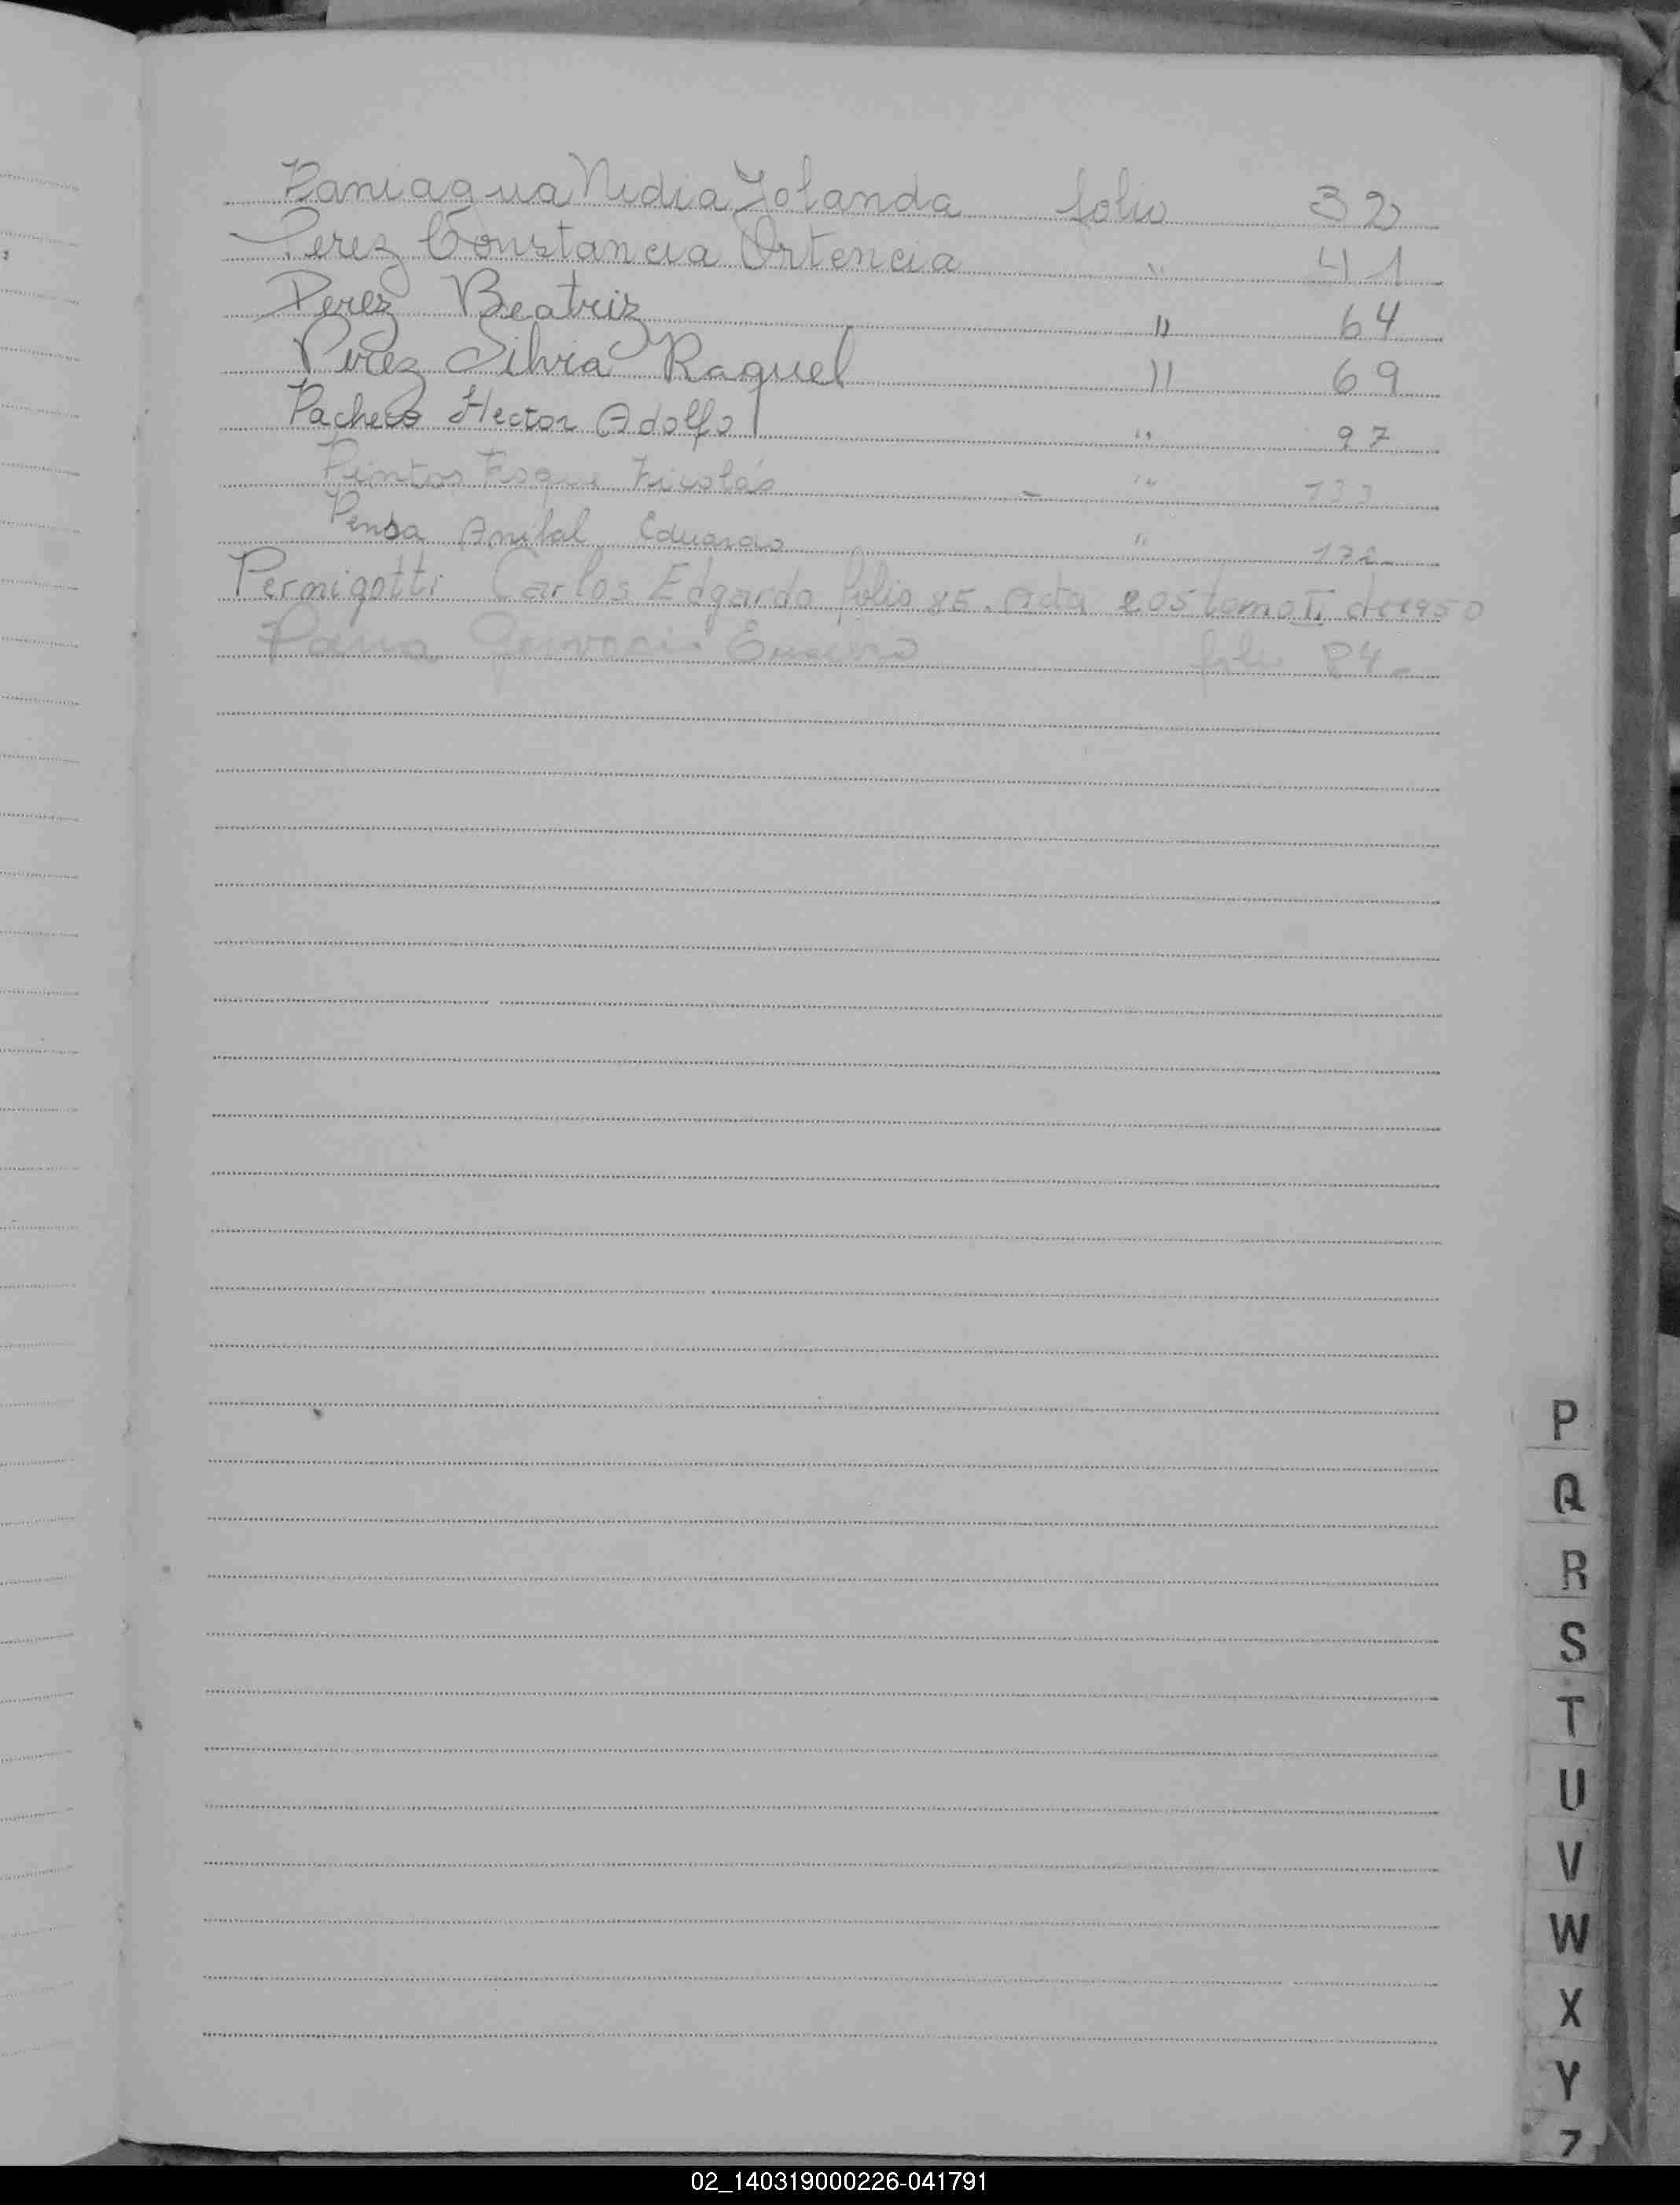 Paniagua Nidia Yolanda folio 32
Perez Constancia Ortencia " 41
Perez Beatriz " 64
Perez Silvia Raquel " 69
Pacheco Hector Adolfo " 97
Pintos Roque Nicolás - " 133
Pensa Anibal Eduardo " 172-
Permigotti Carlos Edgardo folio 85. Acta 205 tomo II de 1950
folio 84-
P
Q
R
S
T
U
V
W
X
Y
Z
02_140319000226-041791